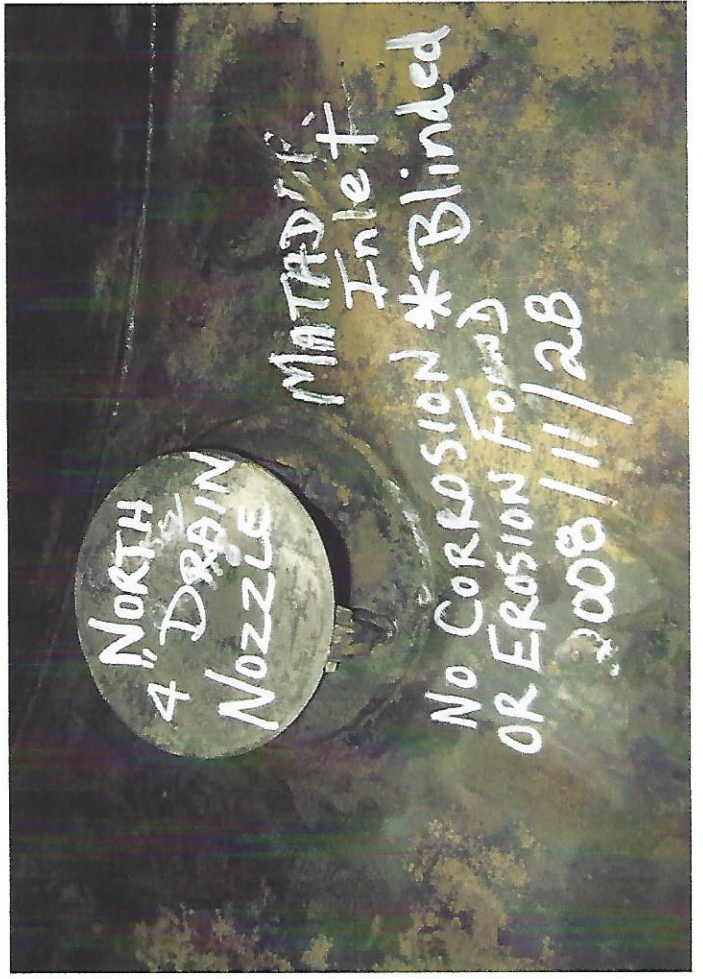 NORTH
4" DRAIN
NOZZLE
Inlet
*Blinded
No CORROSION
OR EROSION FOUND
2008/11/28